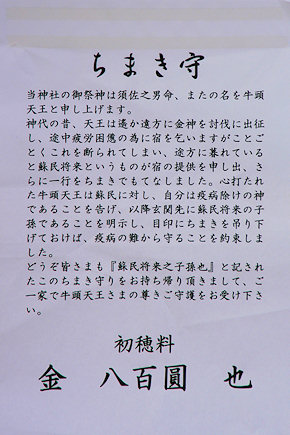 ちまき守
当神社の御祭神は須佐之男命、またの名を牛頭
天王と申し上げます。
神代の昔、天王は遥か遠方に金神を討伐に出征
し、途中疲労困憊の為に宿を乞いますがことご
とくこれを断られてしまい、途方に暮れている
と蘇民将来というものが宿の提供を申し出、さ
らに一行をちまきでもてなしました。心打たれ
た牛頭天王は蘇民に対し、自分は疫病除けの神
であることを告げ、以降玄関先に蘇民将来の子
孫であることを明示し、目印にちまきを吊り下
げておけば、疫病の難から守ることを約束しま
した。
どうぞ皆さまも『蘇民将来之子孫也』と記され
たこのちまき守りをお持ち帰り頂きまして、ご
一家で牛頭天王さまの尊きご守護をお受け下さ
い。
初穂料
金　八百圓　也